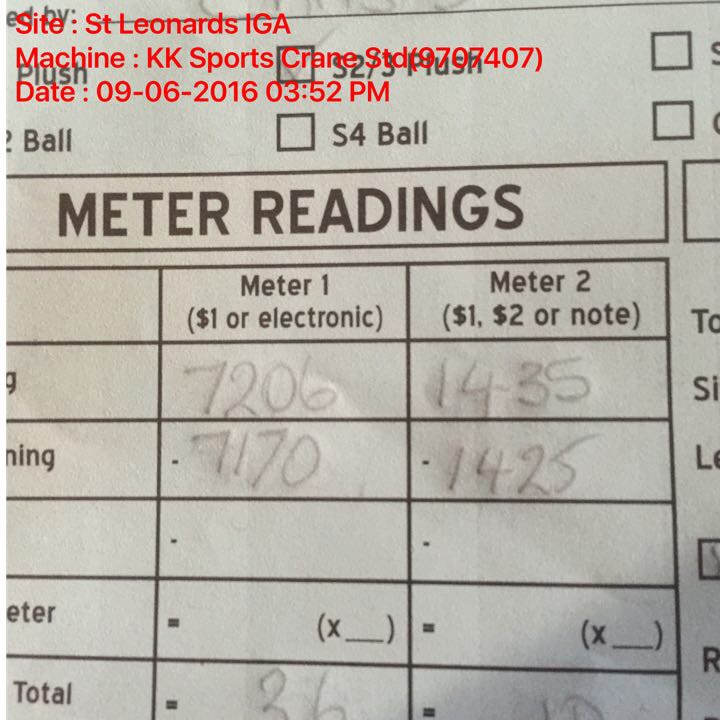 ed by:
Site : St Leonards IGA
Machine : KK Sports Crane Std(9707407)
Plush S2/3 Plush S
Date : 09-06-2016 03:52 PM
2 Ball S4 Ball
METER READINGS
Meter 1 Meter 2
($1 or electronic) ($1, $2 or note) To
g 7206 1435 Si
ning - 7170 - 1425 Le
- -
eter = (x__) = (x__)
R
Total = 36 = 10